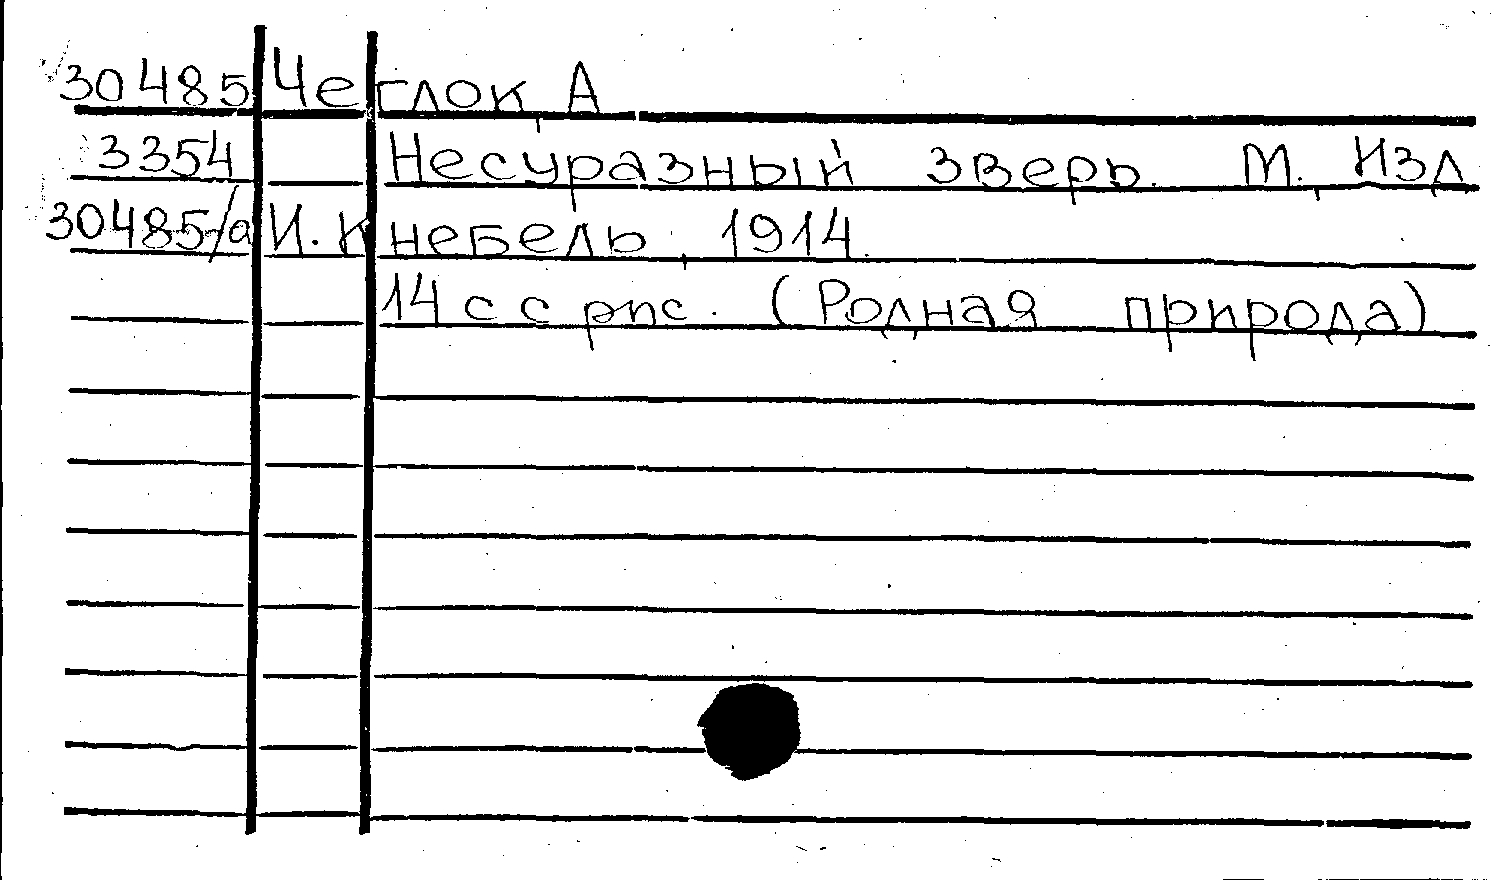 30485 Чеглок, А
3354 Несуразный зверь. М., Изд
30485/а И. Кнебель, 1914.
14 с с рис. (Родная природа)